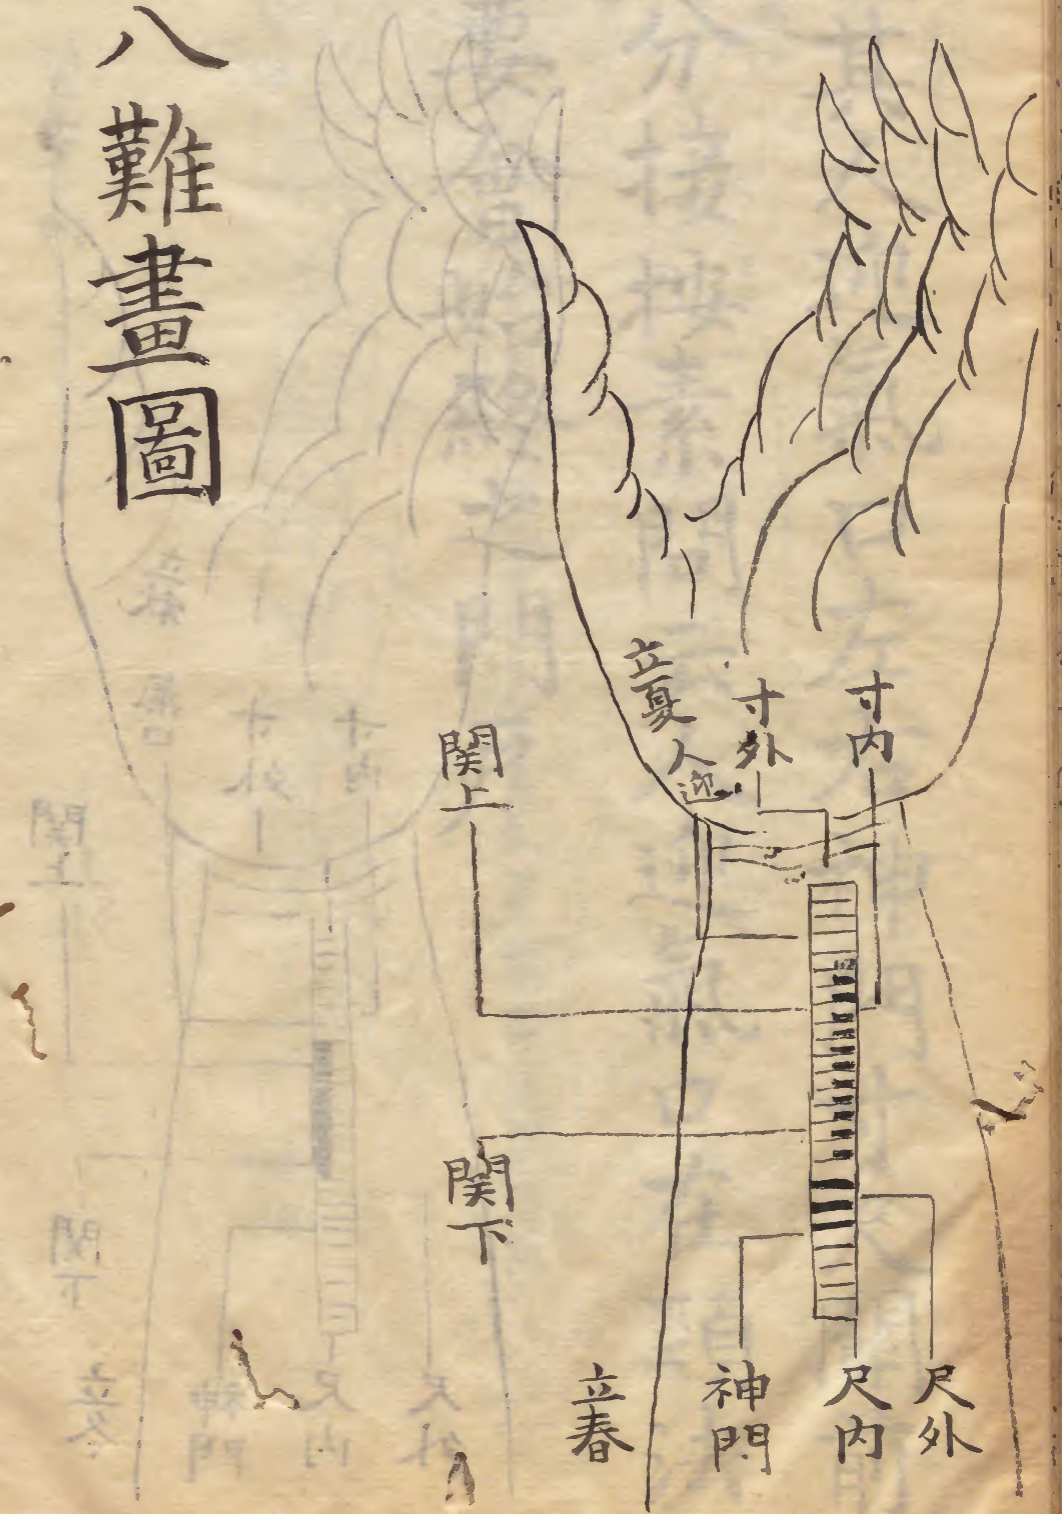 八難畫圖
寸内
寸外
立夏
人迎
関上
関下
尺外
尺内
神門
立春